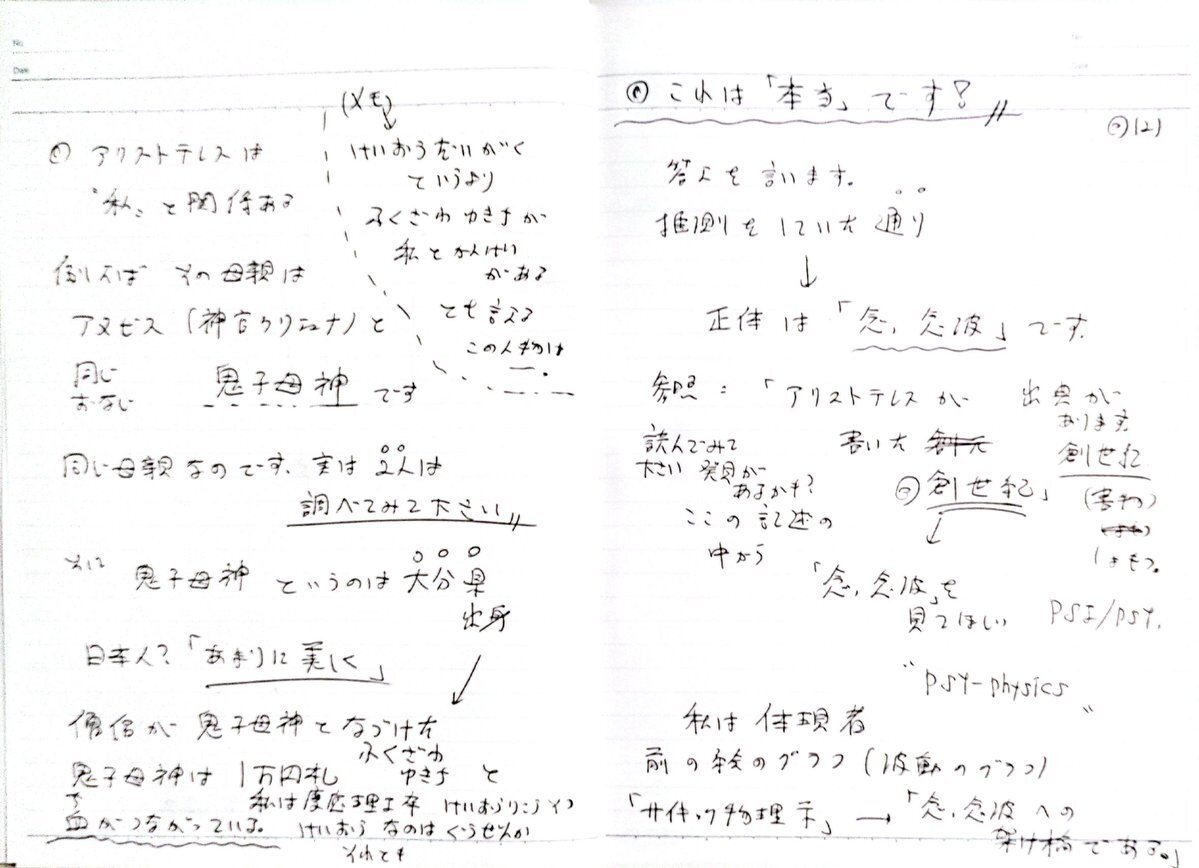 No.
Date
(メモ)
◎ アリストテレスは
"私"と関係ある
例えば その母親は
アヌビス(神官クリュナ)と
同じ
おなじ
鬼子母神 です
けいおうだいがく
ていうより
ふくざわ ゆきちが
私と かんけい
がある
とも言える
この人物は
同じ母親なのです、実は2人は
調べてみて下さい
鬼子母神 というのは 大分県
出身
日本人?「あまりに美しく」
僧侶が 鬼子母神と なづけた
鬼子母神は 1万円札
ふくざわ
ゆきち と
血がつながっている。
私は慶応理工卒 けいおうりこうそつ
けいおう なのは ぐうぜんか
それとも
◎ これは「本当」です?
(2)
答えを言います。
推測をしていた通り
正体は「念、念波」です。
参照:「アリストテレスが
書いた
創世紀」
読んでみて
下さい 発見が
あるかも?
出典が
あります
創世紀
(書物)
しょもつ。
ここの記述の
中から
「念、念波」を
見てほしい
PSI/PSY.
"PSY-physics"
私は 体現者
前の絵のグラフ(波動のグラフ)
「サイキック物理学」→「念、念波への
架け橋である。」